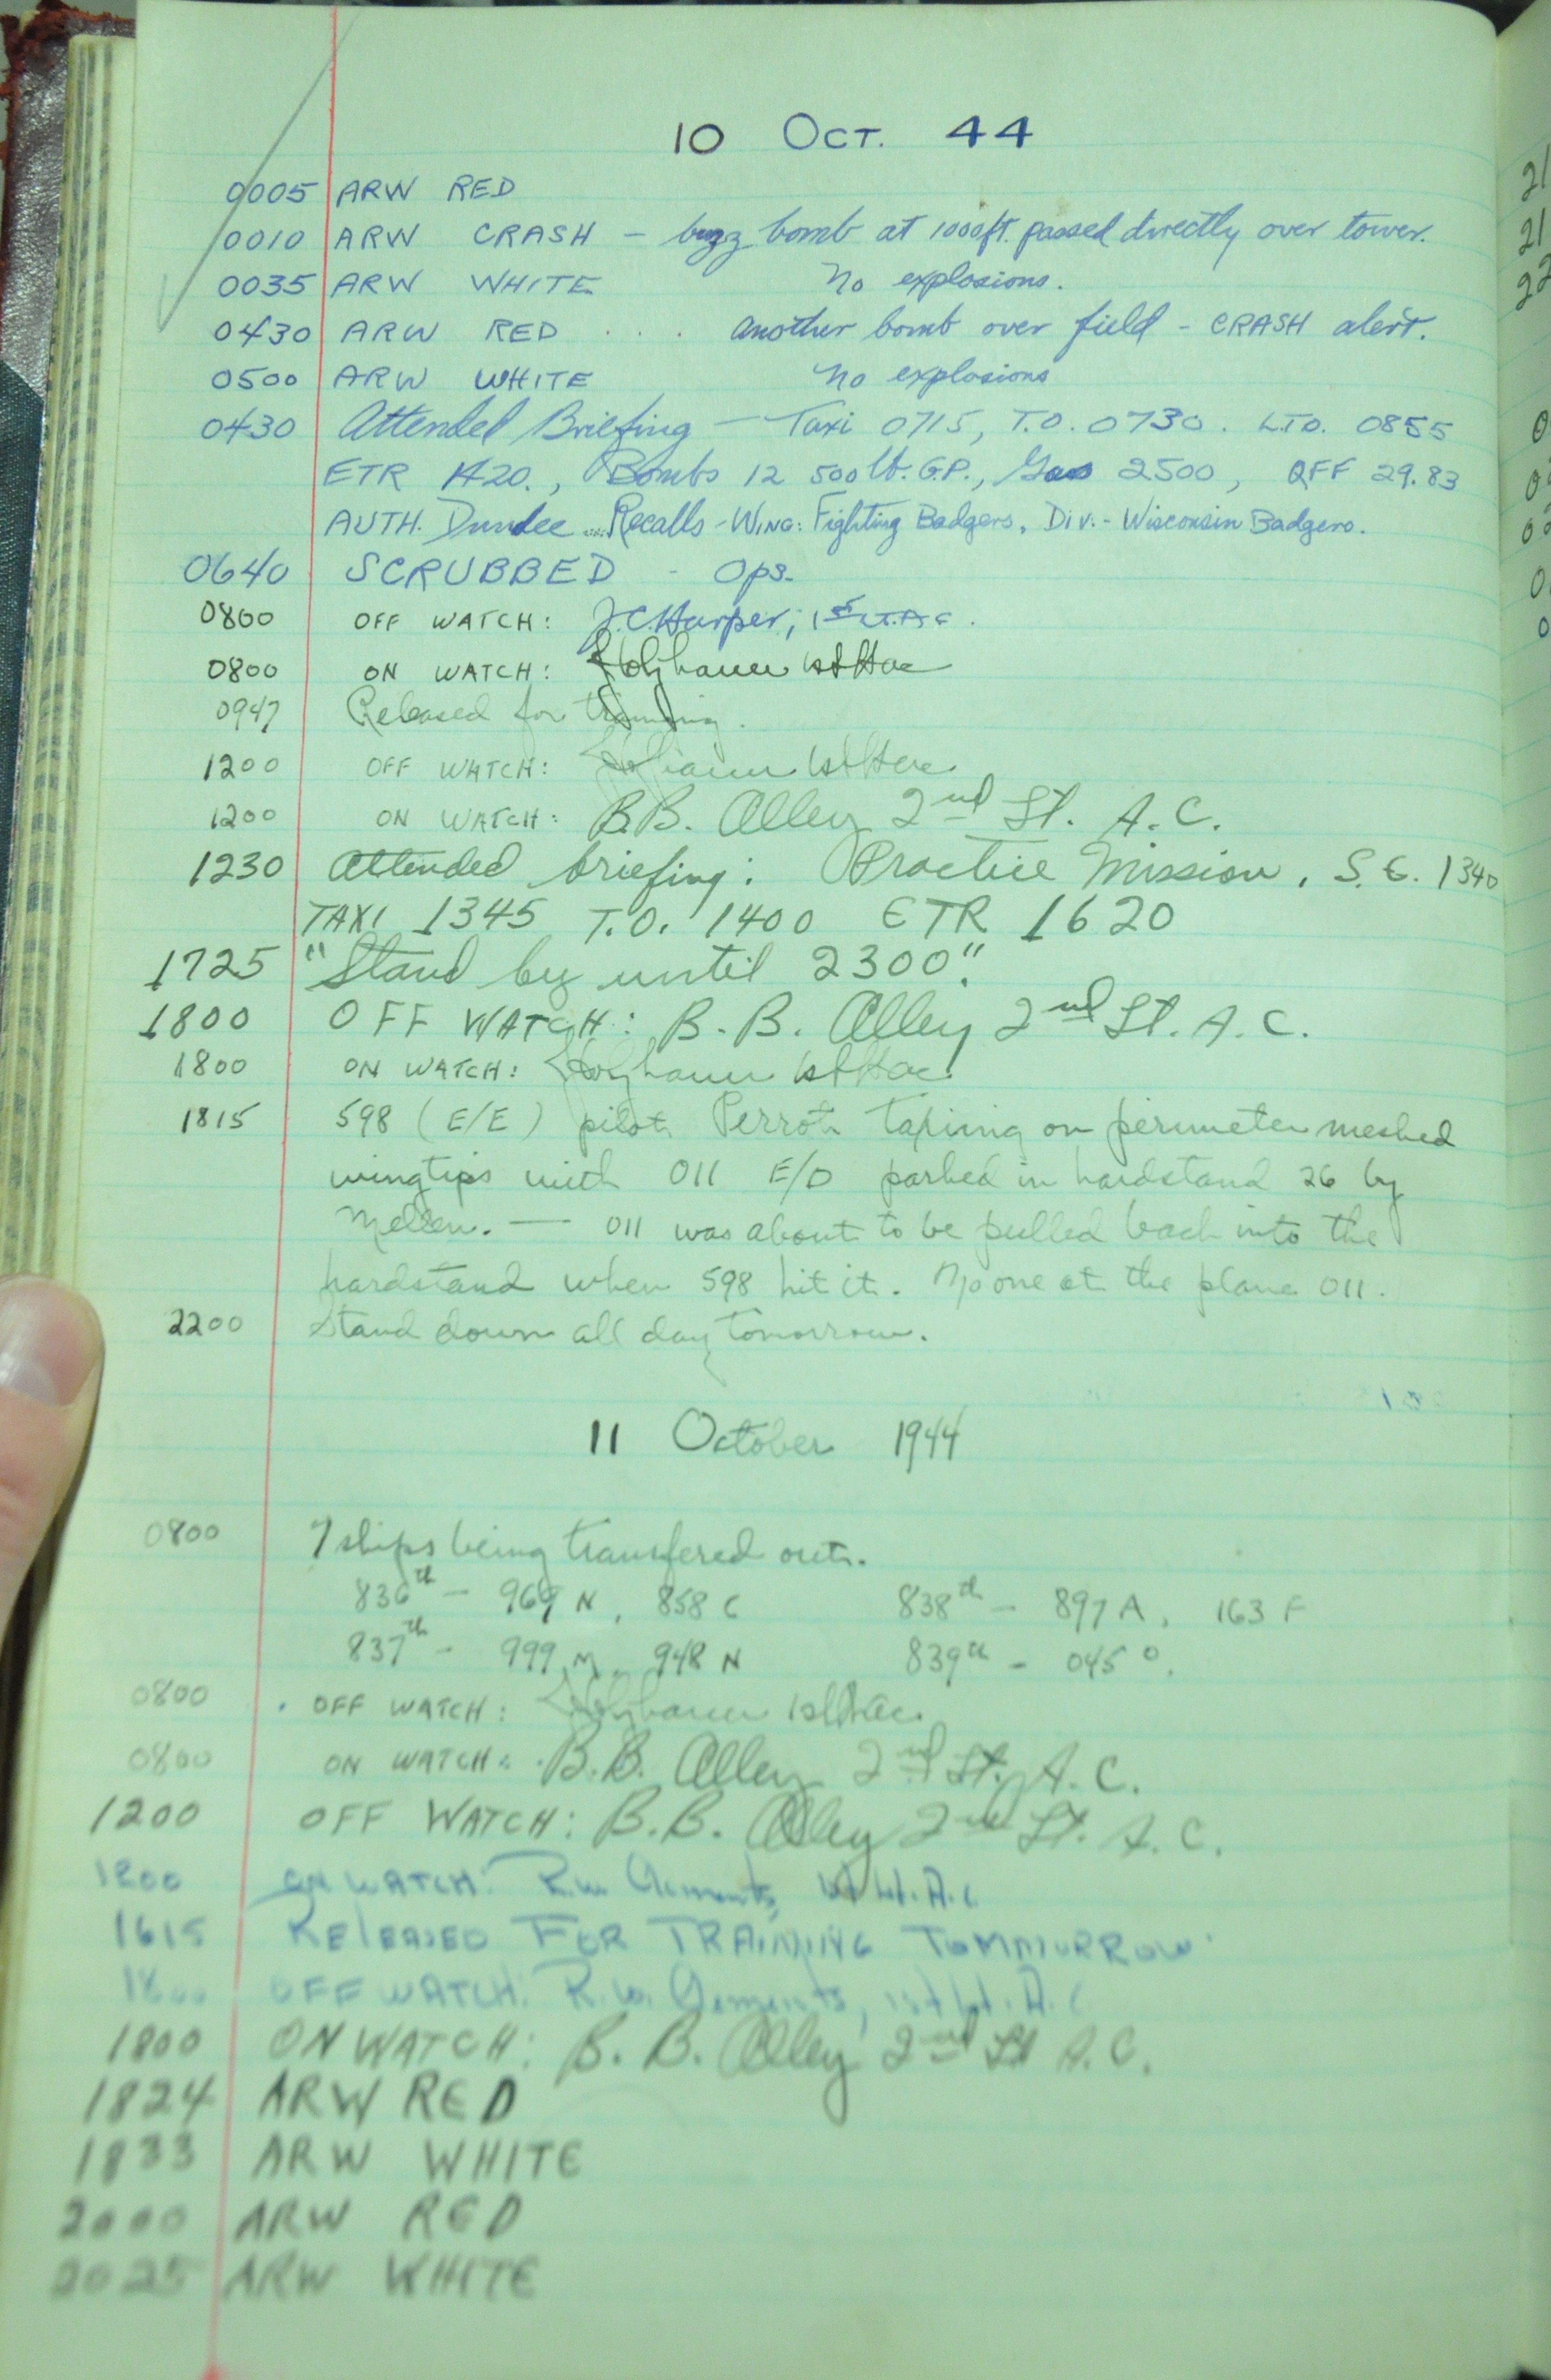 10 OCT. 44
0005 ARW RED
0010 ARW CRASH — buzz bomb at 1000ft. passed directly over tower.
0035 ARW WHITE No explosions.
0430 ARW RED . . . another bomb over field - CRASH alert.
0500 ARW WHITE No explosions
0430 Attended Briefing — Taxi 0715, T.O. 0730. LTO. 0855
ETR 1420., Bombs 12 500 lb. G.P., Gas 2500, QFF 29.83
AUTH. Dundee ... Recalls - WING: Fighting Badgers, Div. - Wisconsin Badgers.
0640 SCRUBBED - Ops.
0800 OFF WATCH: J.C. Harper, 1st Lt. AC.
0800 ON WATCH: Holzhauer 1st Lt ac
0947 Released for training.
1200 OFF WATCH: Holzhauer 1st Lt ac
1200 ON WATCH: B.B. Alley 2nd Lt. A.C.
1230 Attended briefing: Practice Mission, S.E. 1340
TAXI 1345 T.O. 1400 ETR 1620
1725 "Stand by until 2300".
1800 OFF WATCH: B.B. Alley 2nd Lt. A.C.
1800 ON WATCH: Holzhauer 1st Lt ac
1815 598 (E/E) pilot Perrot taxiing on perimeter meshed
wingtips with 011 E/O parked in hardstand 26 by
Mellen. — 011 was about to be pulled back into the
hardstand when 598 hit it. No one at the plane 011.
2200 Stand down all day tomorrow.
11 October 1944
0800 7 ships being transfered out.
836th - 969 N, 858 C 838th - 897 A, 163 F
837th - 999 M, 948 N 839th - 045 O.
0800 OFF WATCH: Holzhauer 1st Lt ac
0800 ON WATCH: B.B. Alley 2nd Lt. A.C.
1200 OFF WATCH: B.B. Alley 2nd Lt. A.C.
1200 ON WATCH: R.W. Clements, 1st Lt. A.C
1615 RELEASED FOR TRAINING TOMMORROW
1800 OFF WATCH: R.W. Clements, 1st Lt. A.C
1800 ON WATCH: B.B. Alley 2nd Lt A.C.
1824 ARW RED
1833 ARW WHITE
2000 ARW RED
2025 ARW WHITE